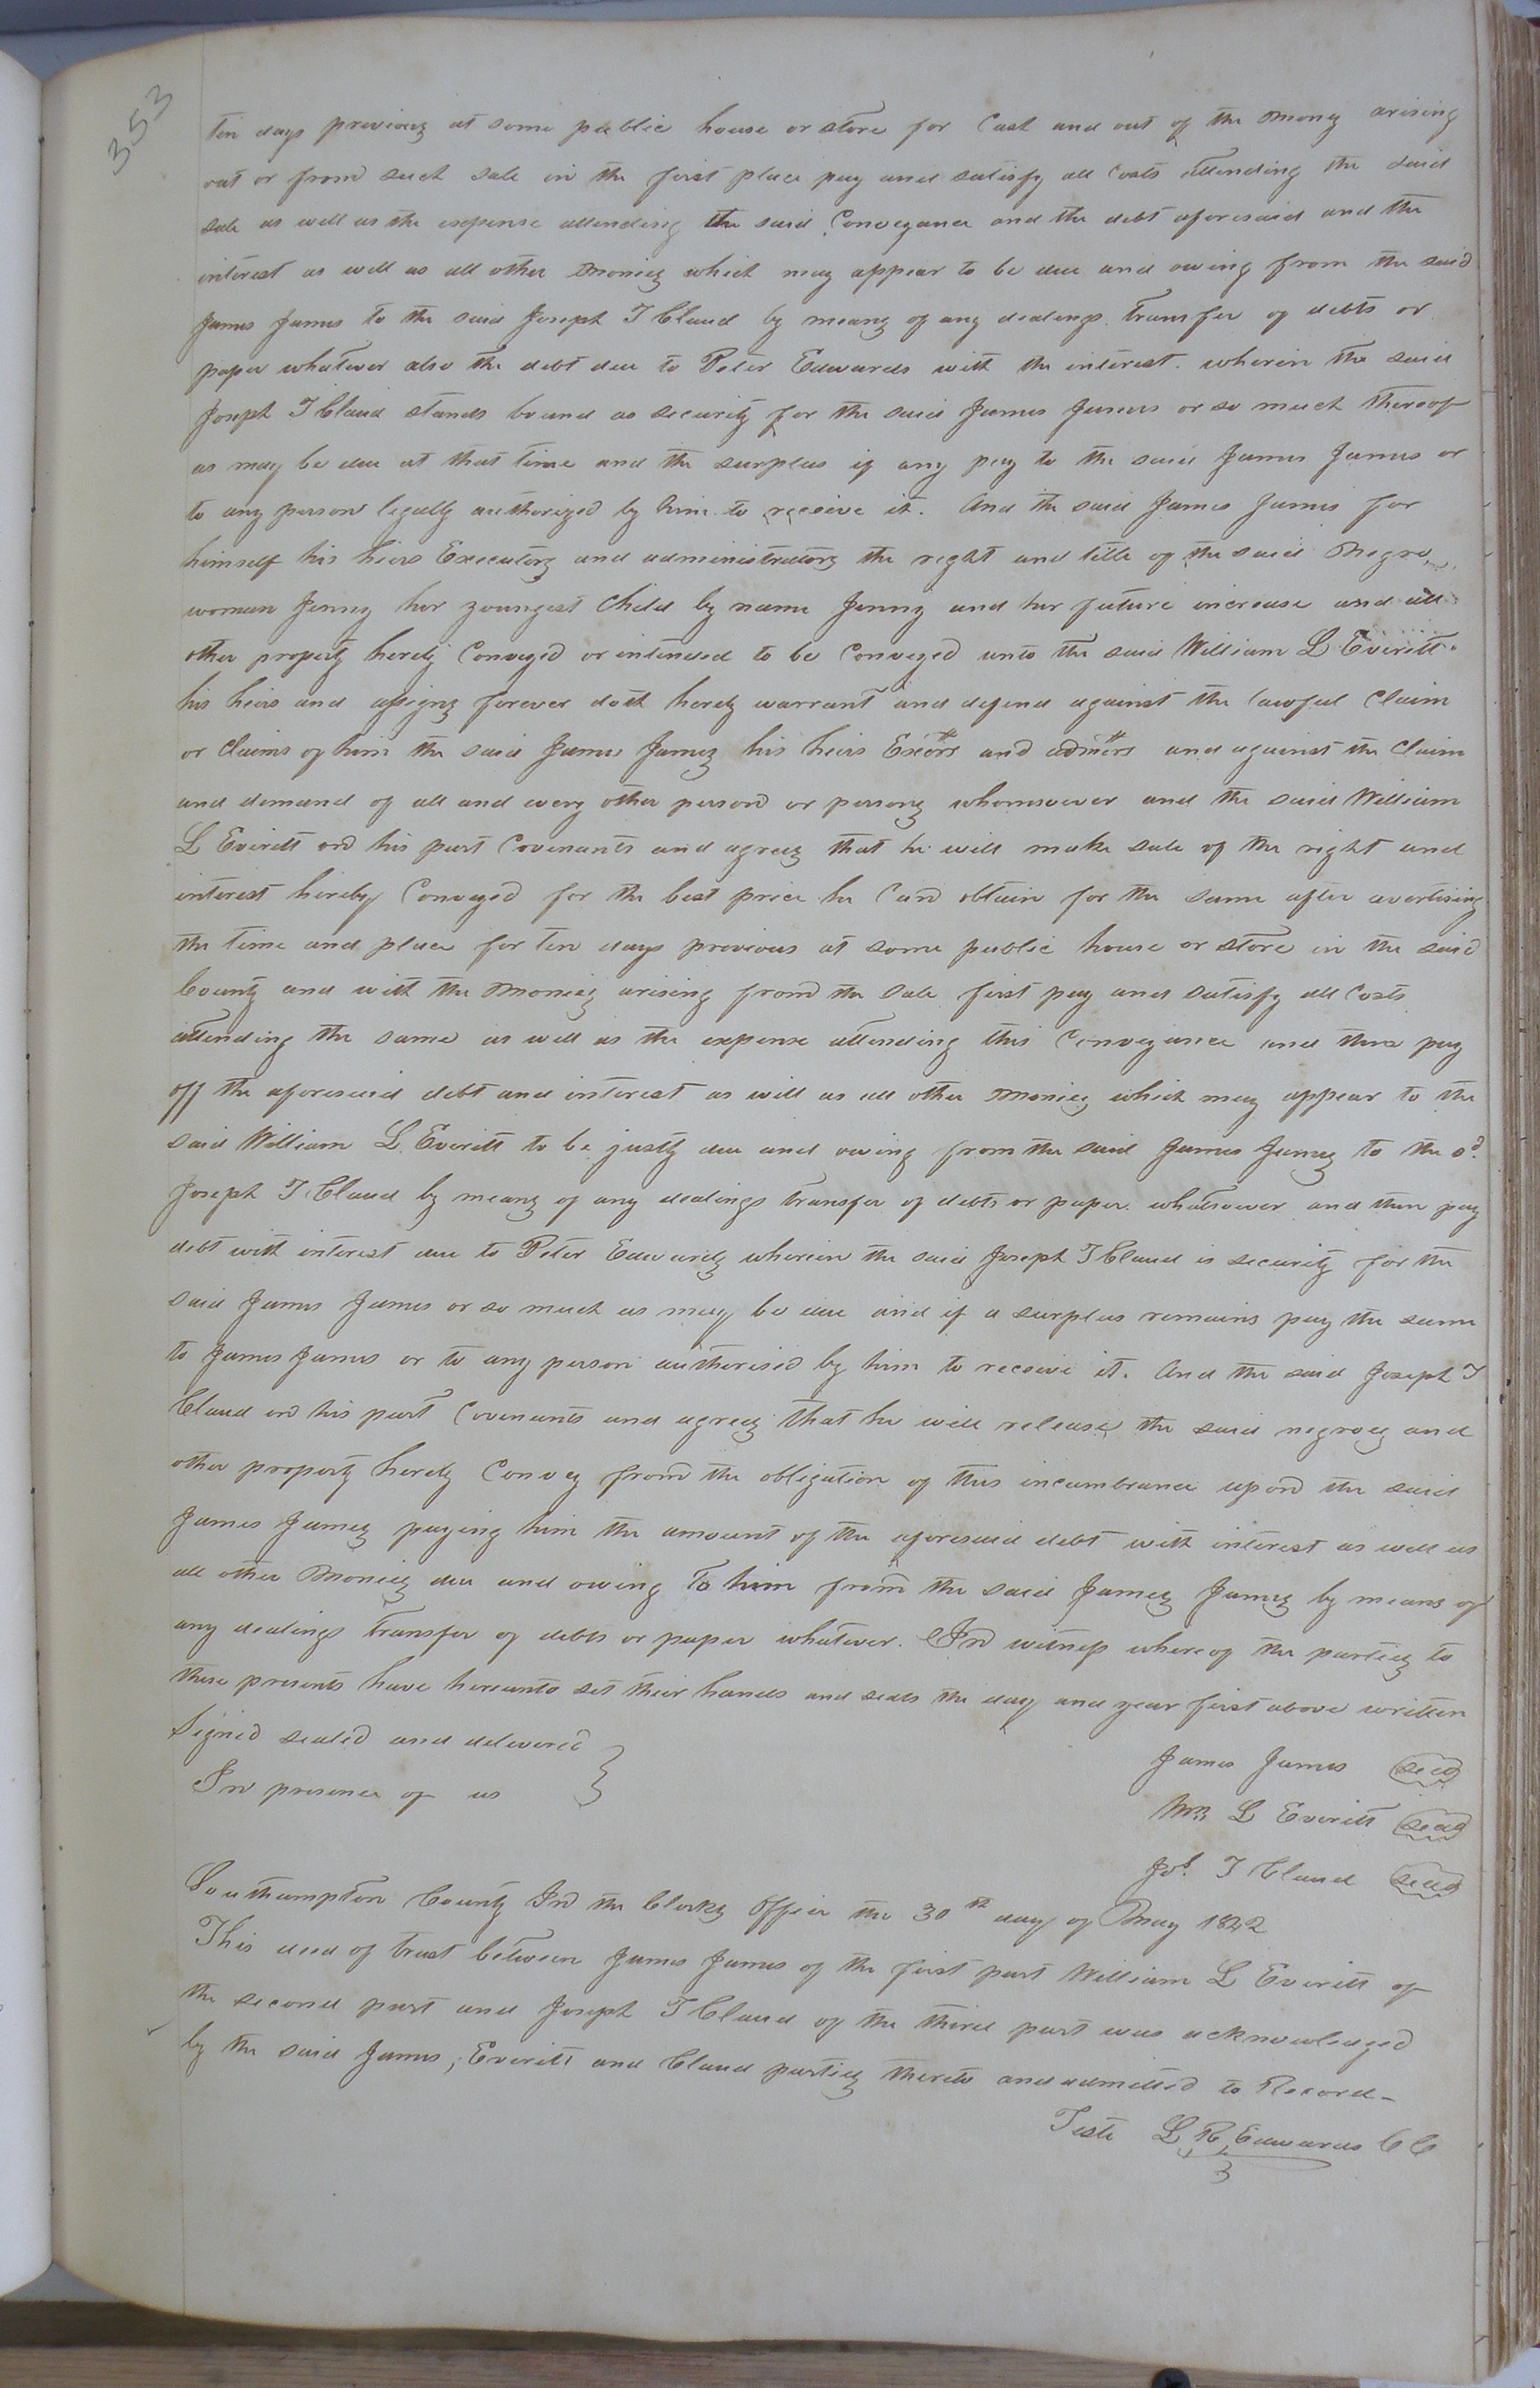 353
ten days previous at some public house or store for Cash and out of the Money arising
out or from such sale in the first place pay and satisfy all Costs attending the said
sale as well as the expense attending the said Conveyance and the debt aforesaid and the
interest as well as all other Monies which may appear to be due and owing from the said
James James to the said Joseph T Claud by means of any dealings transfer of debts or
paper whatever also the debt due to Peter Edwards with the interest. wherein the said
Joseph T Claud stands bound as security for the said James James or so much thereof
as may be due at that time and the surplus if any pay to the said James James or
to any person legally authorized by him to receive it. And the said James James for
himself his heirs Executors and administrators the right and title of the said Negro
woman Jenny her youngest Child by name Jenny and her future increase and all
other property hereby Conveyed or intended to be Conveyed unto the said William L Everitt
his heirs and assigns forever doth hereby warrant and defend against the lawful Claim
or Claims of him the said James James his heirs Exōrs and admōrs and against the Claim
and demand of all and every other person or persons whomsoever and the said William
L Everitt on his part Covenants and agrees that he will make sale of the right and
interest hereby Conveyed for the best price he Can obtain for the same after avertising
the time and place for ten days previous at some public house or store in the said
County and with the Monies arising from the sale first pay and satisfy all Costs
attending the same as well as the expense attending this Conveyance and then pay
off the aforesaid debt and interest as will as all other Monies which may appear to the
said William L. Everitt to be justly due and owing from the said James James to the sd.
Joseph T Claud by means of any dealings transfer of debts or paper whatsoever and then pay
debt with interest due to Peter Edwards wherein the said Joseph T Claud is security for the
said James James or so much as may be due and if a surplus remains pay the same
to James James or to any person authorised by him to receive it. And the said Joseph T
Claud on his part Covenants and agrees that he will release the said negroes and
other property hereby Convey from the obligation of this incumbrance upon the said
James James paying him the amount of the aforesaid debt with interest as well as
all other Monies due and owing to him from the said James James by means of
any dealings transfer of debts or paper whatever. In witness whereof the parties to
these presents have hereunto set their hands and seals the day and year first above written
Signed sealed and delivered
In presence of us
James James seal
Wm L Everitt seal
Jos. T Claud seal
Southampton County In the Clerks Office the 30th day of May 1842
This deed of trust between James James of the first part William L Everitt of
the second part and Joseph T Claud of the third part was acknowledged
by the said James, Everitt and Claud parties thereto and admitted to Record-
Teste L R Edwards CC